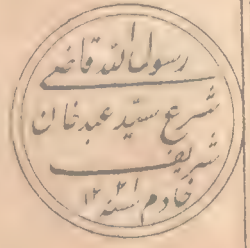 رسول الله قاضی
شرع سید عبد خان
شریف
خادم سنه